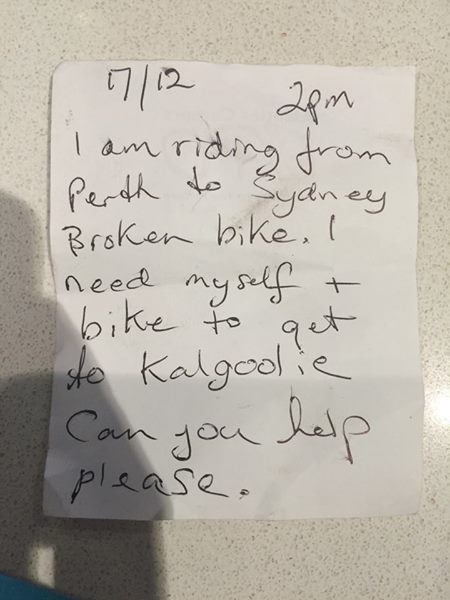 17/12 2pm
I am riding from
Perth to Sydney
Broken bike. I
need myself +
bike to get
to Kalgoolie
Can you help
please.